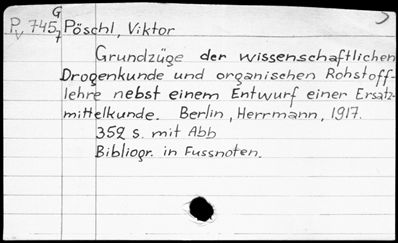 G
Pv 745,7 Pöschl, Viktor
Grundzüge der wissenschaftlichen
Drogenkunde und organischen Rohstoff-
lehre nebst einem Entwurf einer Ersatz-
mittelkunde. Berlin, Herrmann, 1917.
352 s. mit Abb
Bibliogr. in Fussnoten.